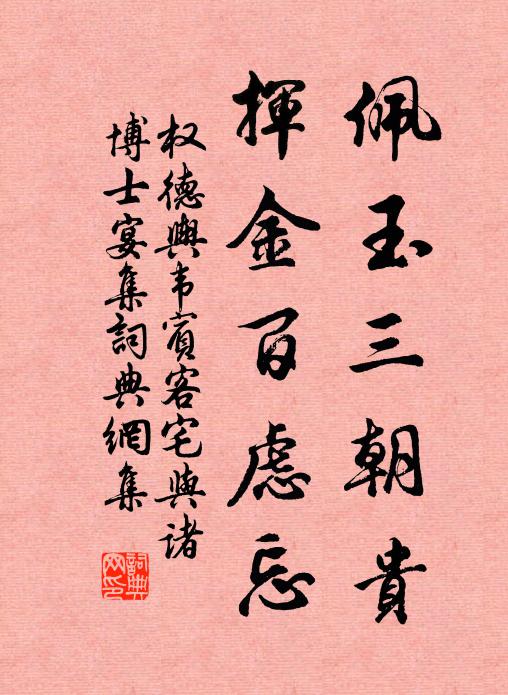 佩玉三朝貴
揮金百慮忘
权德輿韦賓客宅與諸
博士宴集詞典網集
詞典网印